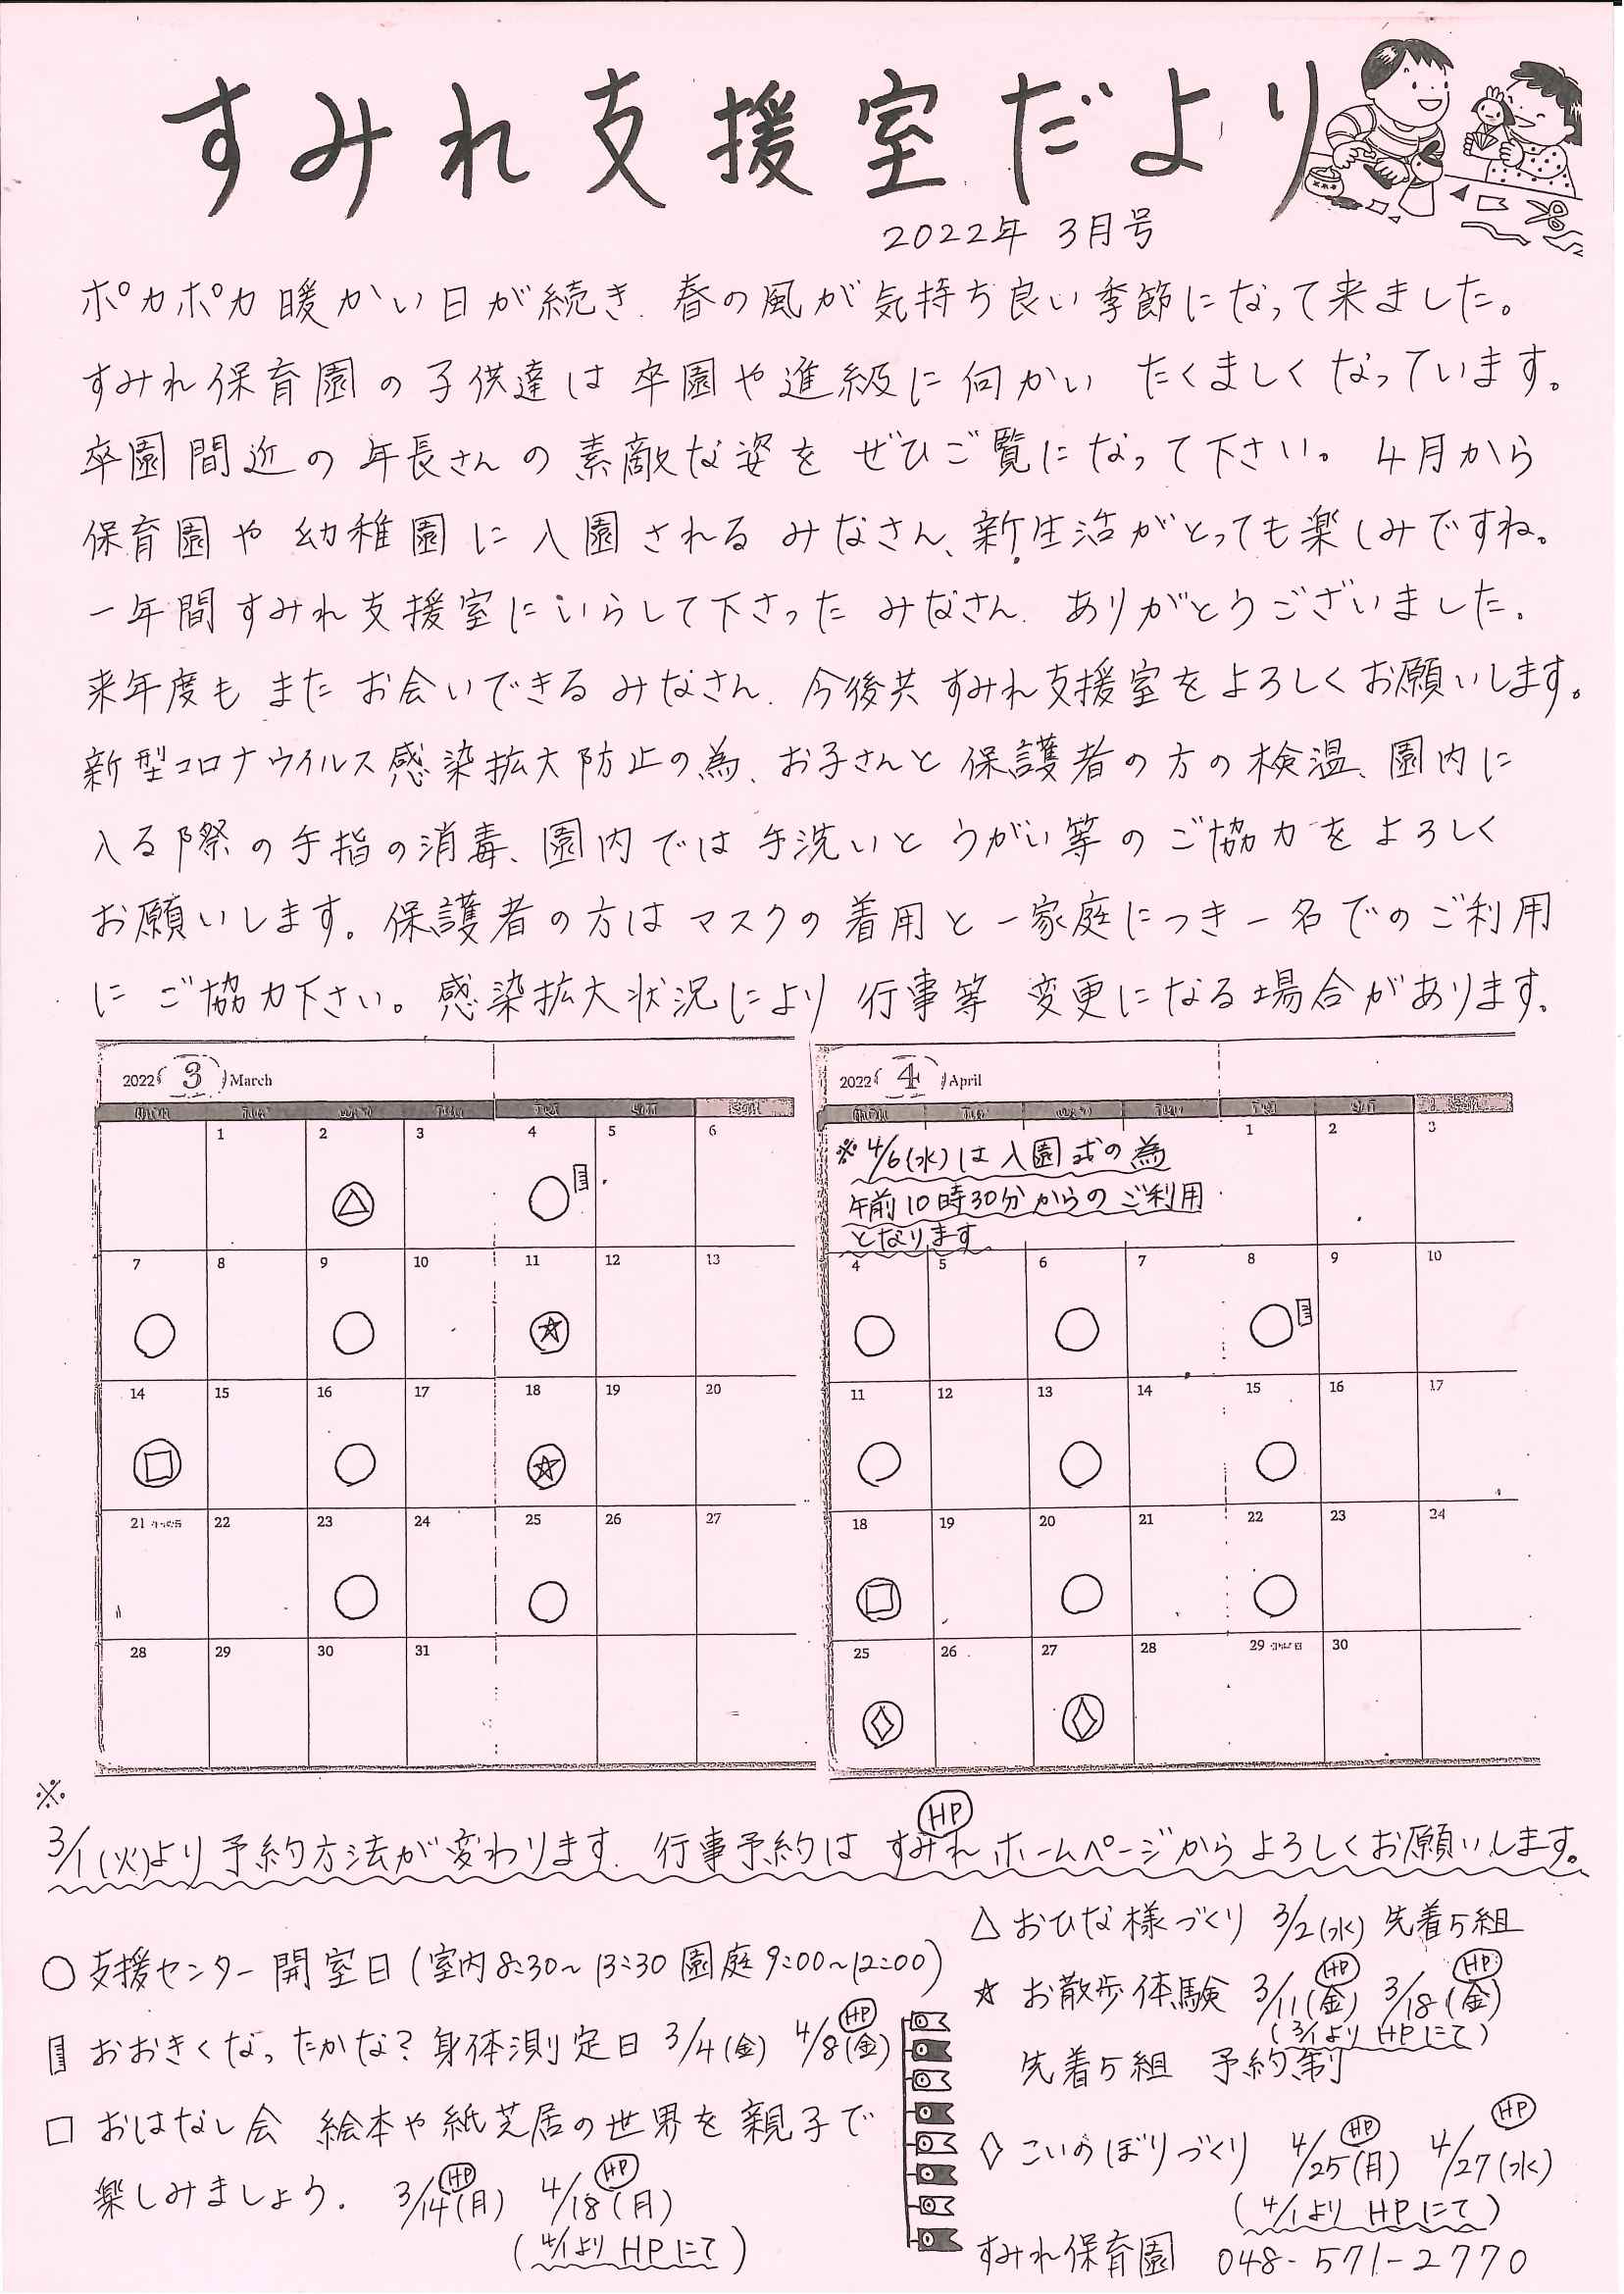 すみれ支援室だより
2022年 3月号
ポカポカ暖かい日が続き、春の風が気持ち良い季節になって来ました。
すみれ保育園の子供達は卒園や進級に向かい たくましくなっています。
卒園間近の年長さんの素敵な姿をぜひご覧になって下さい。4月から
保育園や幼稚園に入園されるみなさん、新生活がとっても楽しみですね。
一年間すみれ支援室にいらして下さったみなさん、ありがとうございました。
来年度もまたお会いできるみなさん、今後共すみれ支援室をよろしくお願いします。
新型コロナウイルス感染拡大防止の為、お子さんと保護者の方の検温、園内に
入る際の手指の消毒、園内では手洗いとうがい等のご協力をよろしく
お願いします。保護者の方はマスクの着用と一家庭につき一名でのご利用
にご協力下さい。感染拡大状況により行事等 変更になる場合があります。
2022 3 March
1 2 3 4 5 6
△ ○
7 8 9 10 11 12 13
○ ○ ☆
14 15 16 17 18 19 20
□ ○ ☆
21 22 23 24 25 26 27
○ ○
28 29 30 31
2022 4 April
※4/6(水)は入園式の為
午前10時30分からのご利用
となります
1 2 3
4 5 6 7 8 9 10
○ ○ ○
11 12 13 14 15 16 17
○ ○ ○
18 19 20 21 22 23 24
□ ○ ○
25 26 27 28 29 30
◇ ◇
※
HP
3/1(火)より予約方法が変わります。行事予約はすみれホームページからよろしくお願いします。
○支援センター開室日(室内8:30~13:30 園庭9:00~12:00)
おおきくなったかな?身体測定日 3/4(金) 4/8(金) HP
□ おはなし会 絵本や紙芝居の世界を親子で
楽しみましょう. 3/14(月) HP 4/18(月) HP
(4/1より HPにて)
△ おひな様づくり 3/2(水) 先着5組
☆ お散歩体験 3/11(金) HP 3/18(金) HP
(3/1よりHPにて)
先着5組 予約制
◇ こいのぼりづくり 4/25(月) HP 4/27(水) HP
(4/1より HPにて)
すみれ保育園 048-571-2770